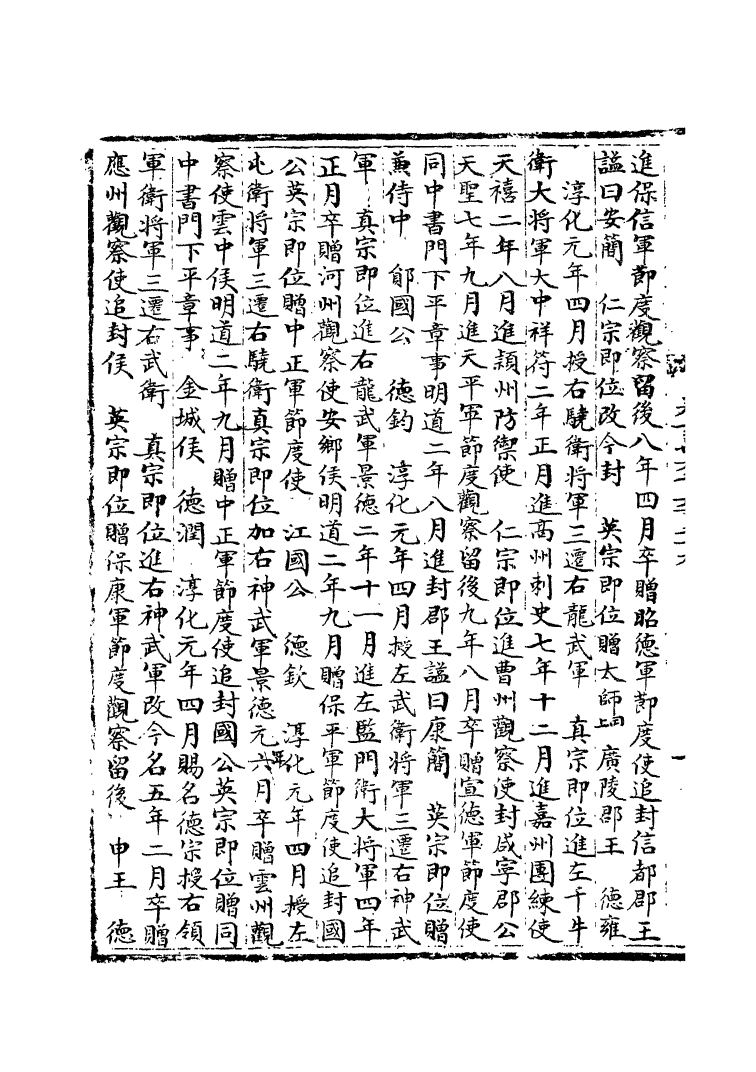 進保信軍節度觀察留後八年四月卒贈昭德軍節度使追封信都郡王
諡曰安簡　仁宗即位改今封　英宗即位贈太師尚　廣陵郡王　德雍
淳化元年四月授右驍衛將軍三遷右龍武軍　真宗即位進左千牛
衛大將軍大中祥符二年正月進高州刺史七年十二月進嘉州團練使
天禧二年八月進潁州防禦使　仁宗即位進曹州觀察使封咸寧郡公
天聖七年九月進天平軍節度觀察留後九年八月卒贈宣德軍節度使
同中書門下平章事明道二年八月進封郡王諡曰康簡　英宗即位贈
兼侍中　鄖國公　德鈞　淳化元年四月授左武衛將軍三遷右神武
軍　真宗即位進右龍武軍景德二年十一月進左監門衛大將軍四年
正月卒贈河州觀察使安鄉侯明道二年九月贈保平軍節度使追封國
公英宗即位贈中正軍節度使　江國公　德欽　淳化元年四月授左
屯衛將軍三遷右驍衛真宗即位加右神武軍景德元年六月卒贈雲州觀
察使雲中侯明道二年九月贈中正軍節度使追封國公英宗即位贈同
中書門下平章事　金城侯　德潤　淳化元年四月賜名德宗授右領
軍衛將軍三遷右武衛　真宗即位進右神武軍改今名五年二月卒贈
應州觀察使追封侯　英宗即位贈保康軍節度觀察留後　申王　德